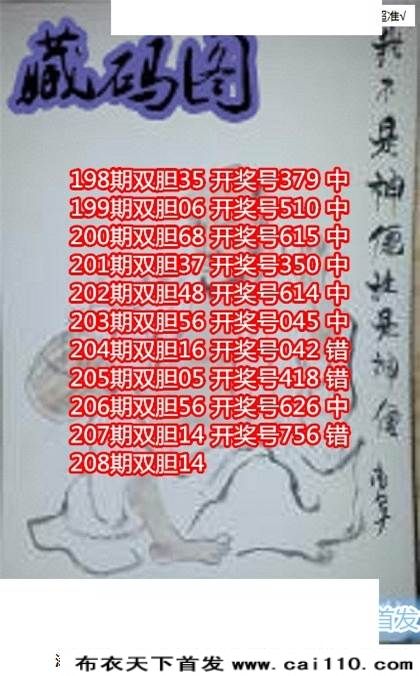 准√
藏码图
198期双胆35 开奖号379 中
199期双胆06 开奖号510 中
200期双胆68 开奖号615 中
201期双胆37 开奖号350 中
202期双胆48 开奖号614 中
203期双胆56 开奖号045 中
204期双胆16 开奖号042 错
205期双胆05 开奖号418 错
206期双胆56 开奖号626 中
207期双胆14 开奖号756 错
208期双胆14
不是神仙胜是神仙
首发
布衣天下首发 www.cai110.com